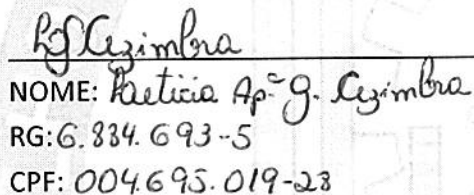 LgCezimbra
NOME: Laeticia Apª G. Cezimbra
RG: 6.834.693-5
CPF: 004.695.019-28